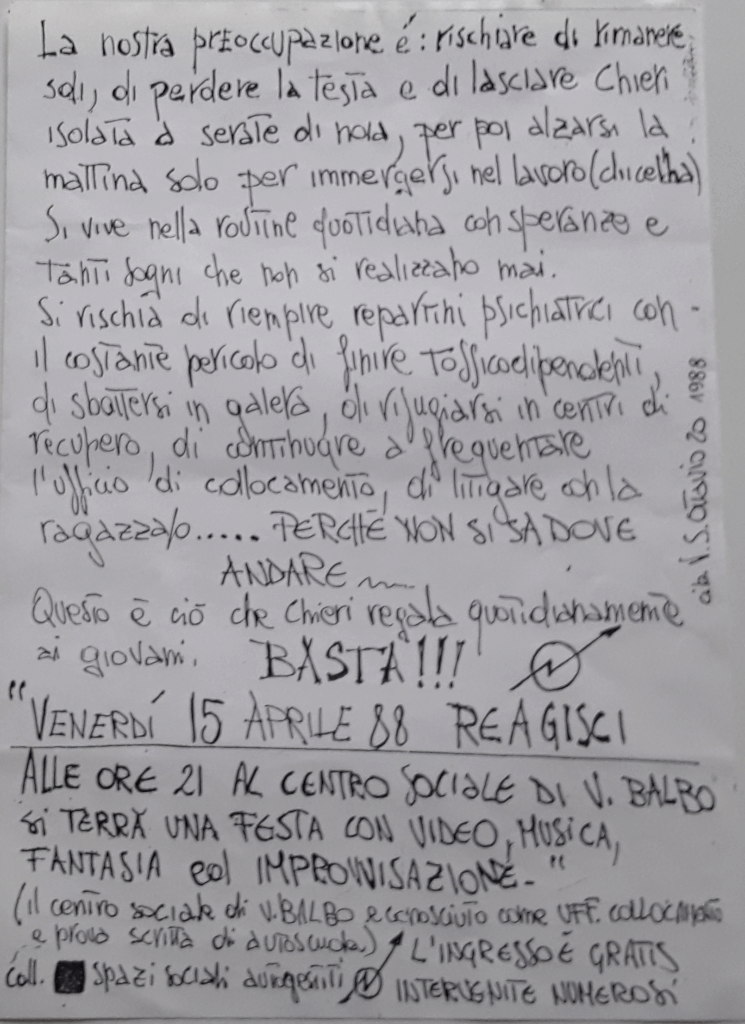 La nostra preoccupazione é: rischiare di rimanere
soli, di perdere la testa e di lasciare Chieri
isolata a serate di noia, per poi alzarsi la
mattina solo per immergersi nel lavoro (chi ce l'ha)
Si vive nella routine quotidiana con speranze e
tanti sogni che non si realizzano mai.
Si rischia di riempire repartini psichiatrici con
il costante pericolo di finire tossicodipendenti,
di sbattersi in galera, di rifugiarsi in centri di
recupero, di continuare a frequentare
l'ufficio di collocamento, di litigare con la
ragazza/o...... PERCHÉ NON SI SA DOVE
ANDARE
Questo è ciò che Chieri regala quotidianamente
ai giovani. BASTA!!!
"VENERDÍ 15 APRILE 88 REAGISCI
ALLE ORE 21 AL CENTRO SOCIALE DI V. BALBO
si TERRÀ UNA FESTA CON VIDEO, MUSICA,
FANTASIA ed IMPROVVISAZIONE."
(il centro sociale di V. BALBO è conosciuto come UFF. collocamento
e prova scritta di autoscuola.) L'INGRESSO È GRATIS
coll. spazi sociali autogestiti INTERVENITE NUMEROSI
V. S. Ottavio 20 1988